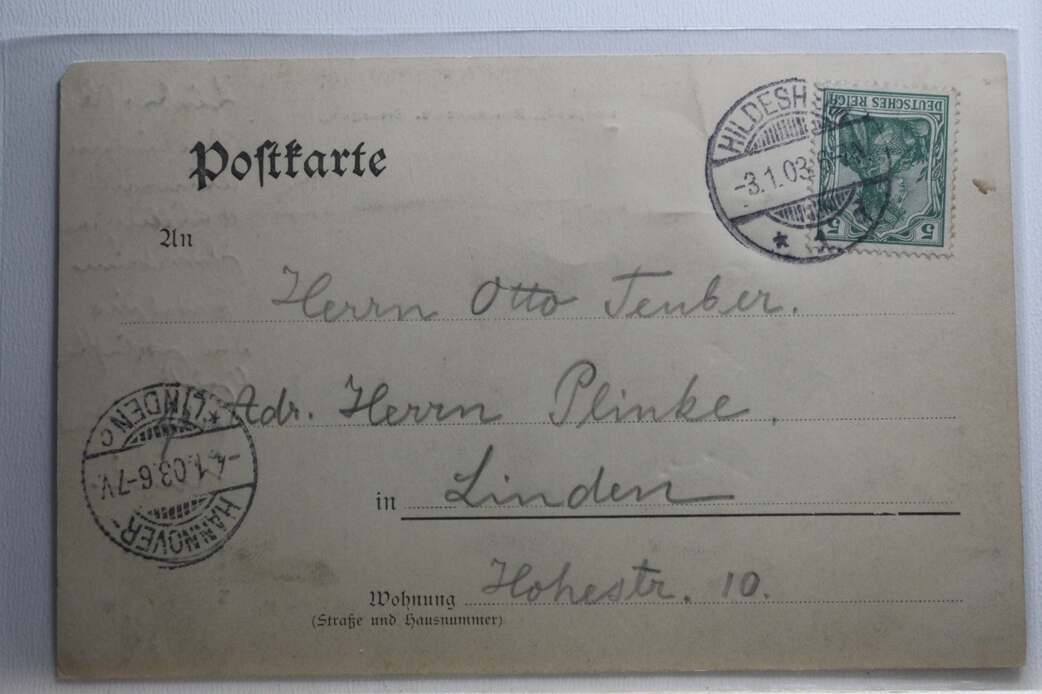 Postkarte
DEUTSCHES REICH
5 5
HILDESH
-3.1.03
An
Herrn Otto Teuber.
Adr. Herrn Plinke.
in Linden
Wohnung Hohestr. 10.
(Straße und Hausnummer)
HANNOVER-
-4.1.03.6-7V.
*LINDEN